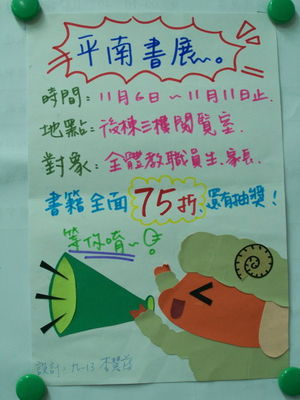 平南書展~。
時間：11月6日~11月11日止.
地點：後棟三樓閱覽室.
對象：全體教職員生.家長.
書籍全面75折.還有抽獎！
等你唷~！
設計：九-13